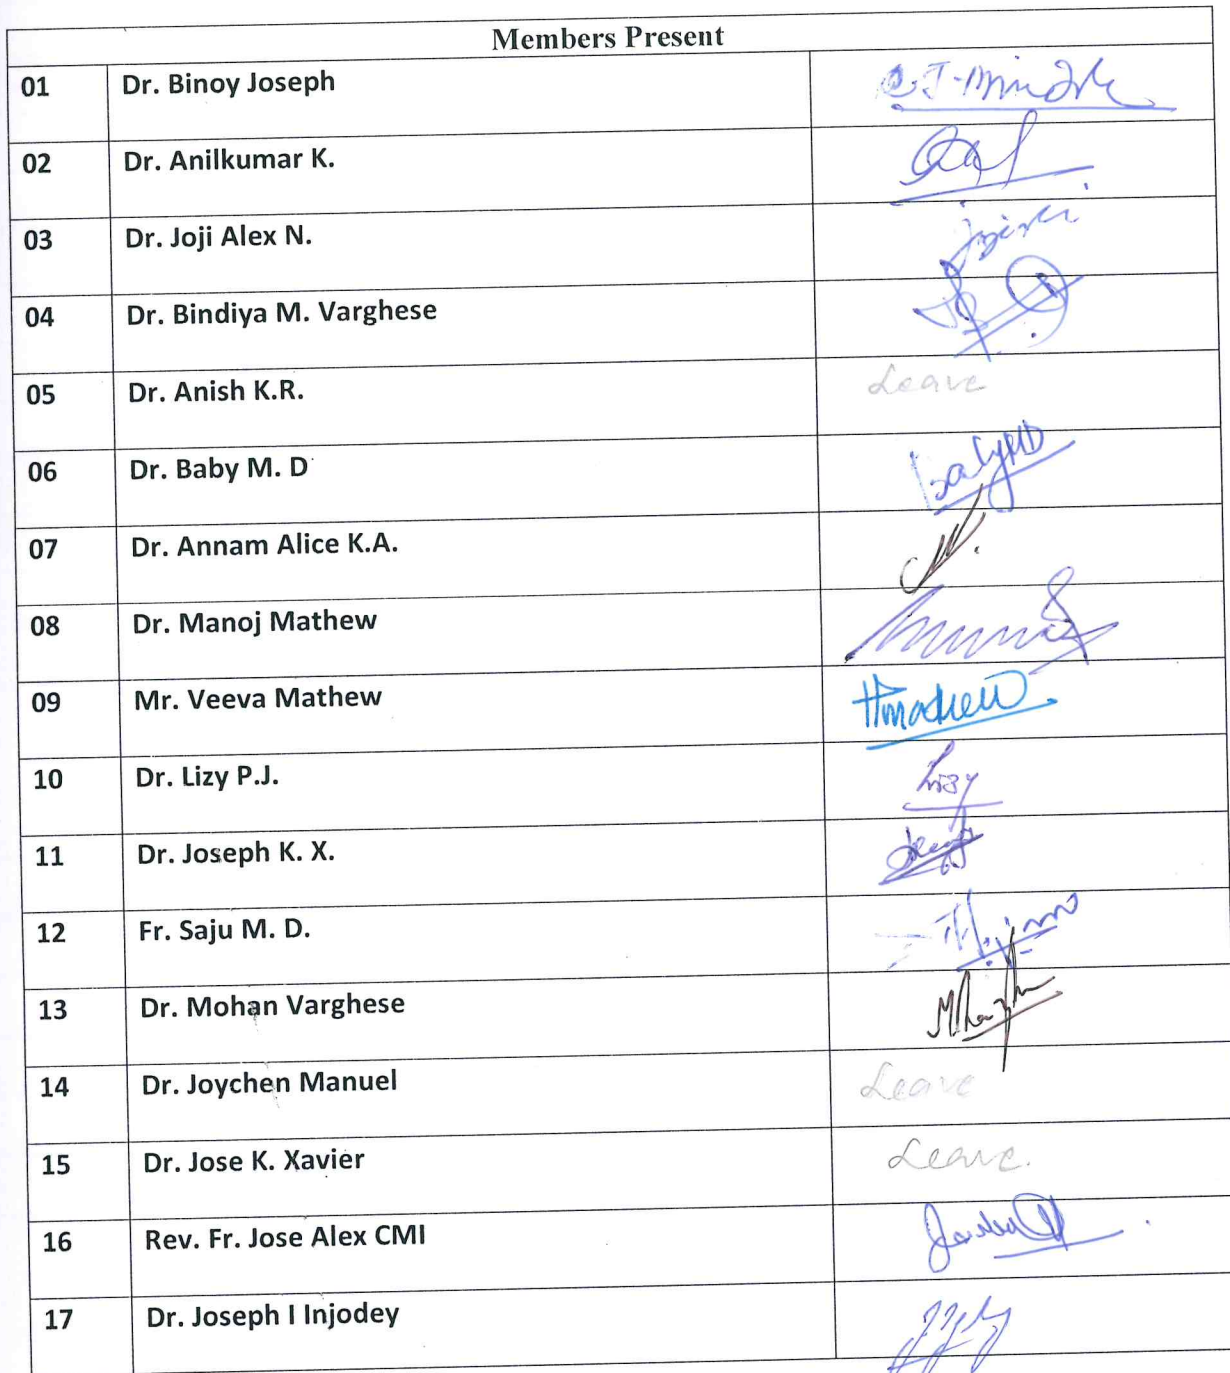 Members Present
01 Dr. Binoy Joseph
02 Dr. Anilkumar K.
03 Dr. Joji Alex N.
04 Dr. Bindiya M. Varghese
05 Dr. Anish K.R. Leave
06 Dr. Baby M. D BabyMD
07 Dr. Annam Alice K.A.
08 Dr. Manoj Mathew
09 Mr. Veeva Mathew
10 Dr. Lizy P.J. Lizy
11 Dr. Joseph K. X.
12 Fr. Saju M. D.
13 Dr. Mohan Varghese
14 Dr. Joychen Manuel Leave
15 Dr. Jose K. Xavier Leave.
16 Rev. Fr. Jose Alex CMI
17 Dr. Joseph I Injodey